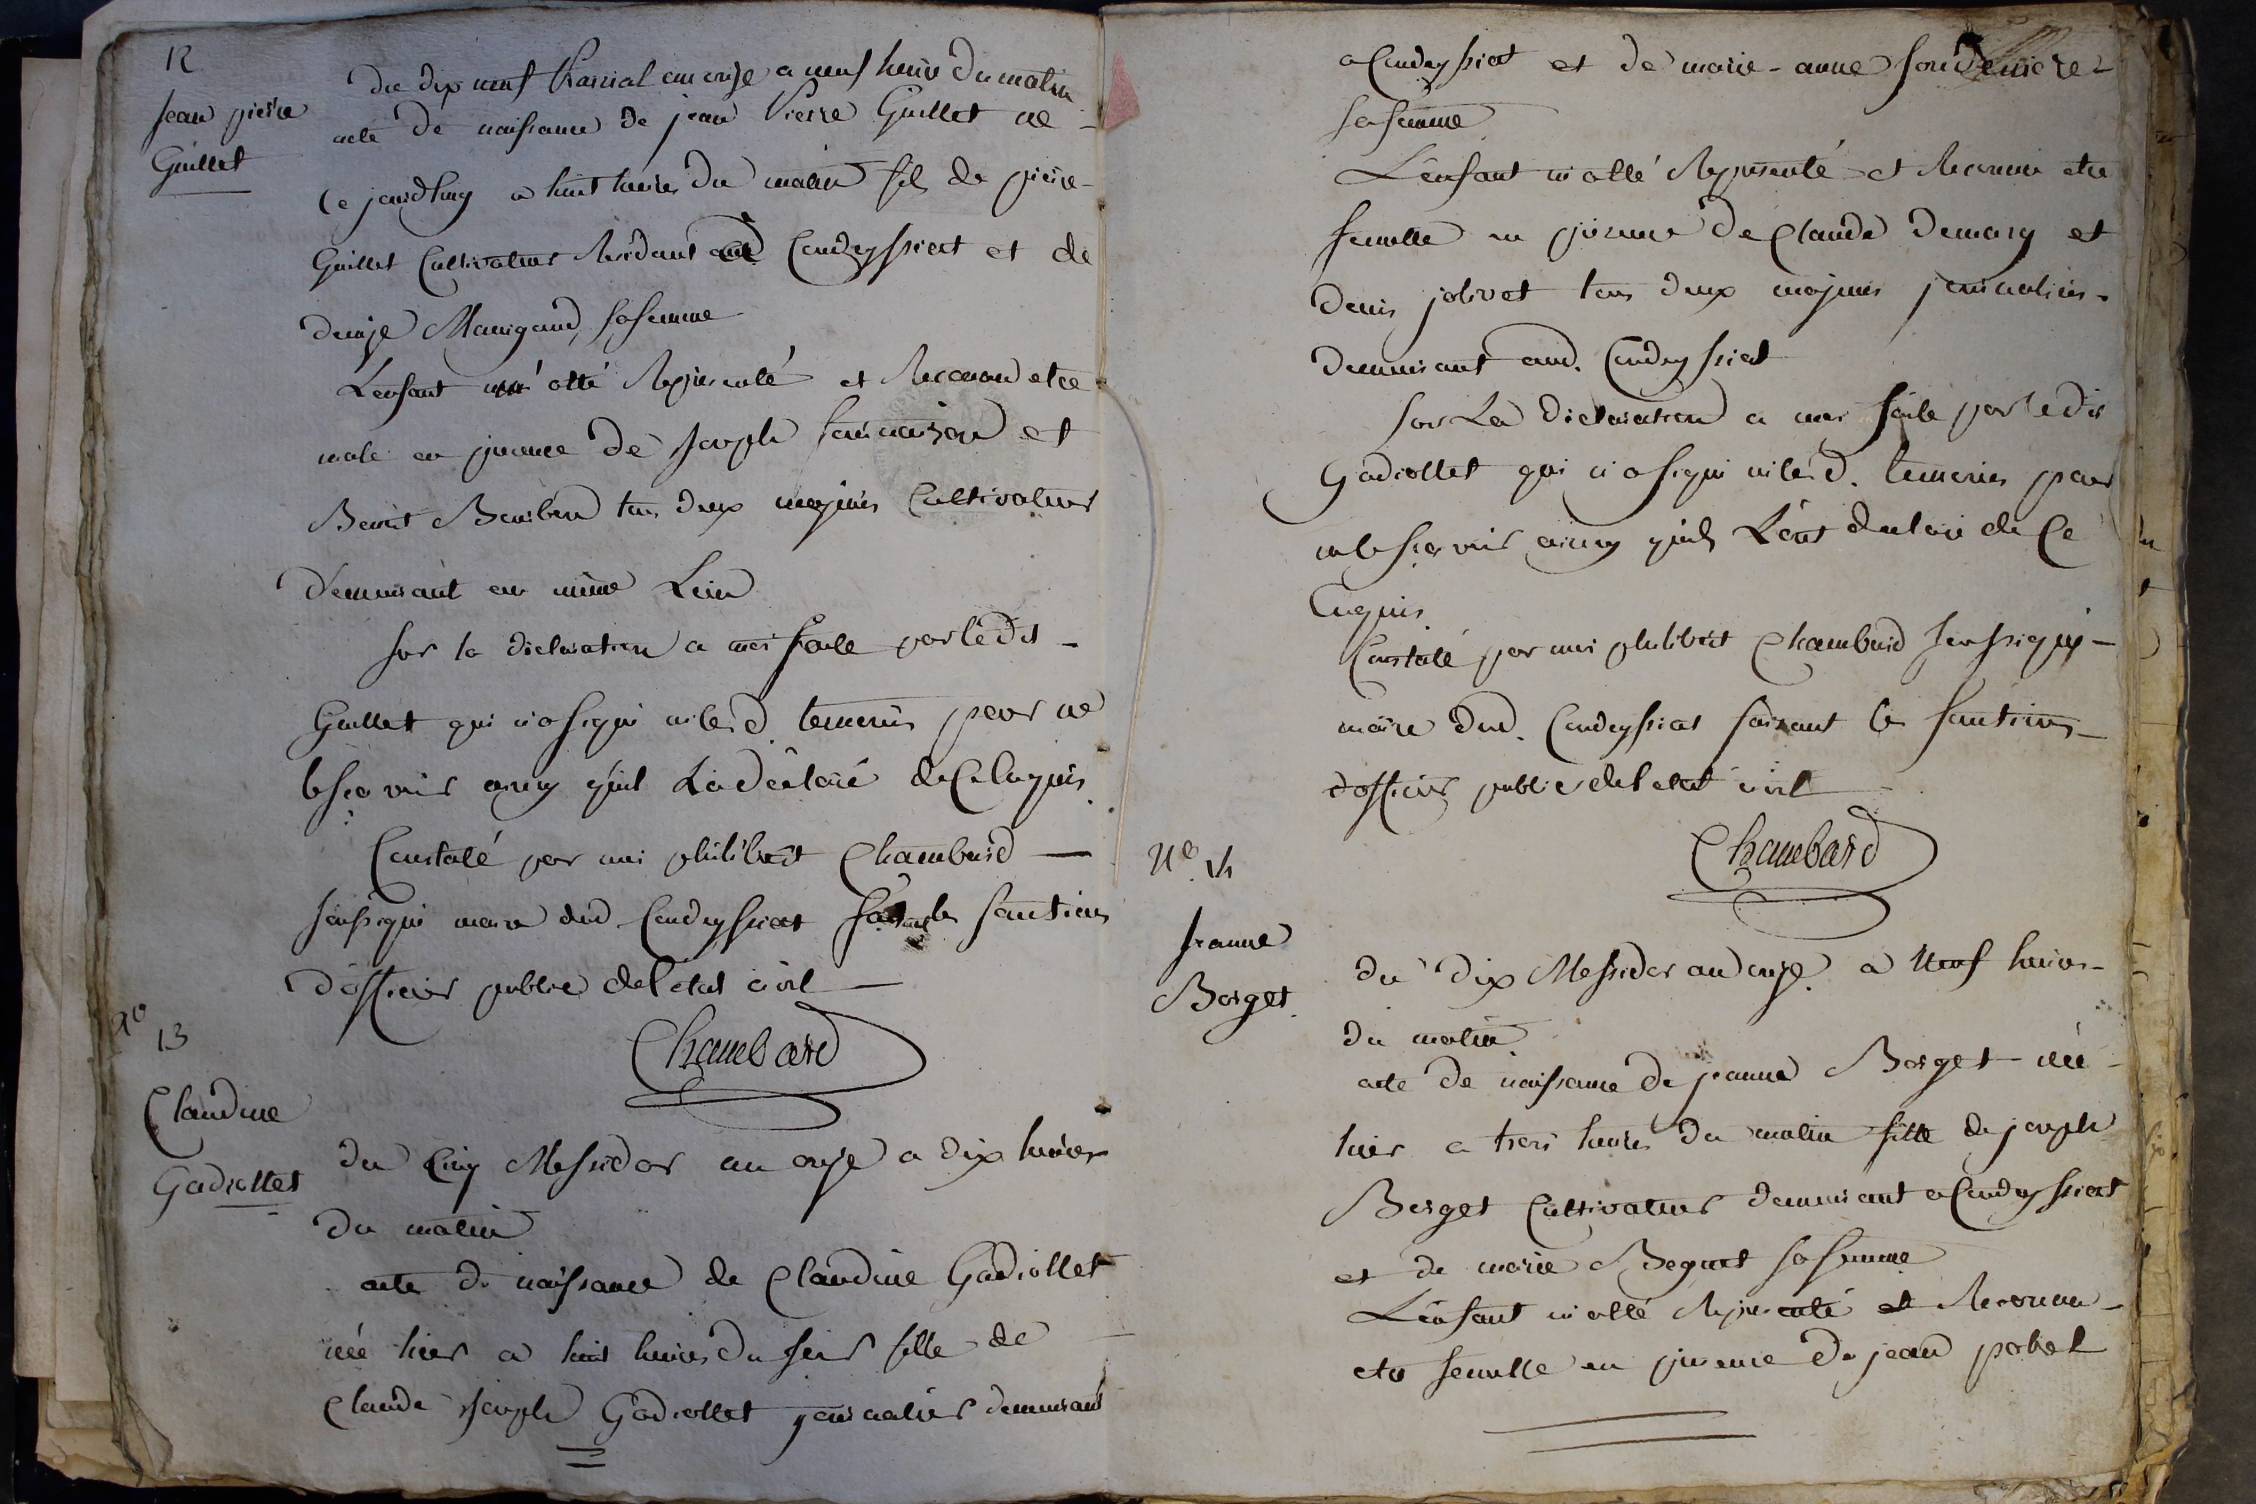 12
Jean pierre
Guillet
du dix neuf Prairial an onze a neuf heures du matin
acte de naissance de jean Pierre Guillet né
ce jourdhuy a huit heures du matin fils de pierre
Guillet Cultivateur Residant aud Condeyssiat et de
denise Manigand, sa femme
L'enfant m'a étté Representé et Reconnu etre
male en presence de Joseph et
Benoit tous deux majeurs Cultivateurs
demeurant au même Lieu
sur la declaration a moi faite par le dit
Guillet qui n'a signé ni les d. temoins pour ne
le sçavoir ainsy qu'il L'a déclaré de Ce Enquis.
Constaté par moi philibert Chambard
soussigné maire dud Condeyssiat faisant les fonctions
d'officier public de l'etat civil
Chambard
No
13
Claudine
Gadiollet
du Cinq Messidor an onze a dix heures
du matin
acte de naissance de Claudine Gadiollet
née hier a huit heures du soir fille de
Claude Joseph Gadiollet journalier demeurant
a Condeyssiat et de marie-anne
sa femme
L'enfant m'a étté Representé et Reconnu etre
femelle en presence de Claude Demary et
denis jolivet tous deux majeurs journaliers
demeurant aud. Condeyssiat
sur La declaration a moi faite par le dit
Gadiollet qui n'a signé ni les d. temoins pour
ne le sçavoir ainsy qu'ils L'ont declaré de Ce
Enquis.
Constaté par moi philibert Chambard soussigné
maire dud. Condeyssiat faisant les fonctions
d'officier public de l'etat civil
Chambard
No. 14
Jeanne
Borget.
du dix Messidor an onze. a Neuf heures
du matin
acte de naissance de jeanne Borget née
hier a trois heures du matin fille de joseph
Borget Cultivateur demeurant a Condeyssiat
et de marie Beguet sa femme
L'enfant m'a étté Representé et Reconnu
etre femelle en presence de jean pobel